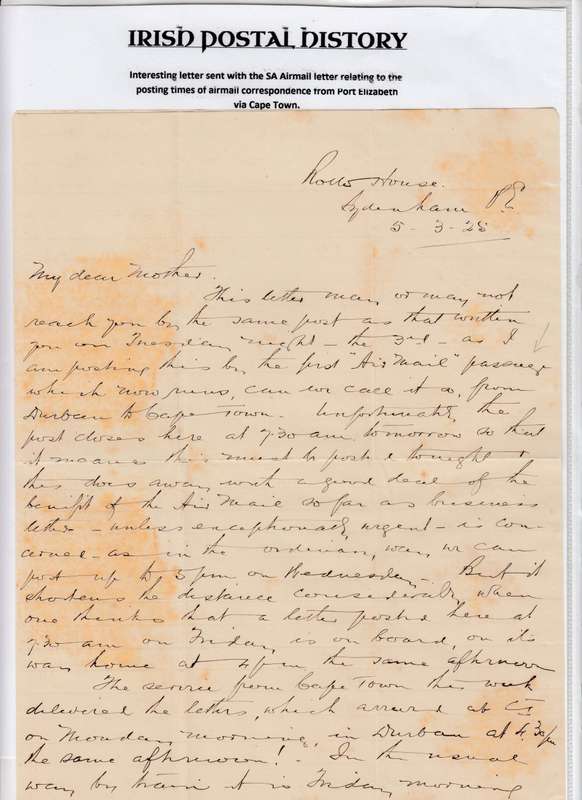 IRISH POSTAL HISTORY
Interesting letter sent with the SA Airmail letter relating to the
posting times of airmail correspondence from Port Elizabeth
via Cape Town.
House.
Sydenham P.E
5-3-25
My dear Mother.
This letter may or may not
reach you by the same post as that written
you on Tuesday night - the 3rd - as I
am posting this by the first "Air Mail" passage
which now runs, can we call it so, from
Durban to Cape Town. Unfortunately the
post closes here at 7.30 am tomorrow so that
it means this must be posted tonight &
this does away with a good deal of the
benefit of the Air Mail so far as business
letters - unless exceptionally urgent - is con-
cerned - as in the ordinary way we can
post up to 5pm on Wednesday. But it
shortens the distance considerably when
one thinks that a letter posted here at
7.30 am on Friday is on board, on its
way home at 4pm the same afternoon
The service from Cape Town this week
delivered the letters, which arrived at CT
on Monday morning, in Durban at 4.30pm
the same afternoon! - In the usual
way by train it is Friday morning